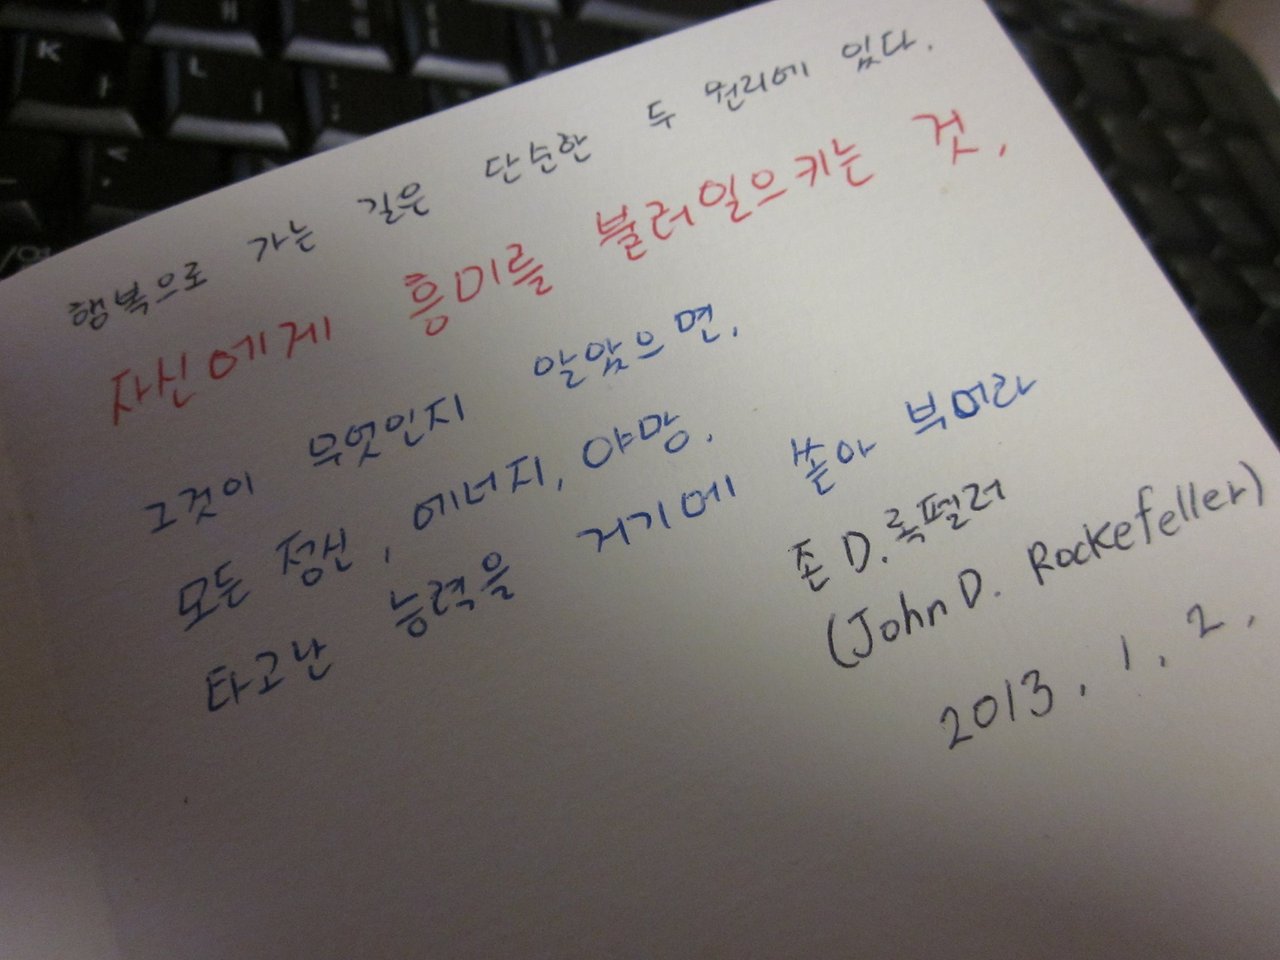 행복으로 가는 길은 단순한 두 원리에 있다.
자신에게 흥미를 불러일으키는 것,
그것이 무엇인지 알았으면,
모든 정신, 에너지, 야망,
타고난 능력을 거기에 쏟아 부어라
존 D. 록펠러
(John D. Rockefeller)
2013. 1. 2.
K
L
한/영